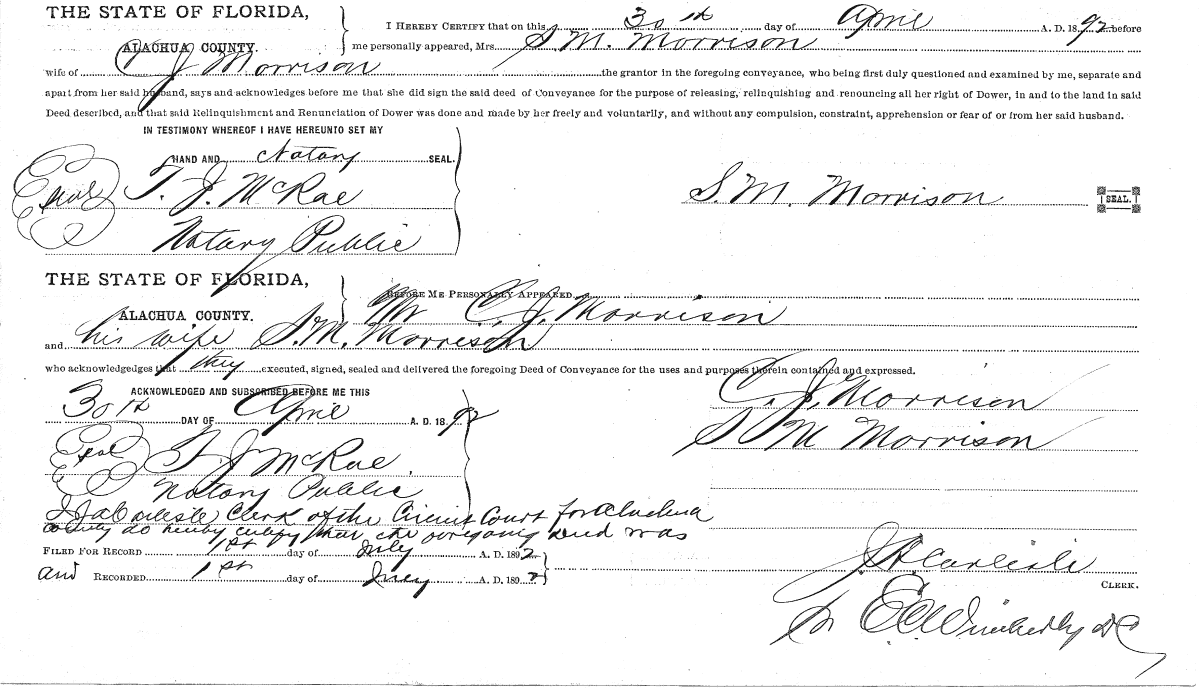 THE STATE OF FLORIDA,
ALACHUA COUNTY.
I HEREBY CERTIFY that on this 30th day of April A. D. 1892 before
me personally appeared, Mrs. S. M. Morrison
wife of C J Morrison the grantor in the foregoing conveyance, who being first duly questioned and examined by me, separate and
apart from her said husband, says and acknowledges before me that she did sign the said deed of Conveyance for the purpose of releasing, relinquishing and renouncing all her right of Dower, in and to the land in said
Deed described, and that said Relinquishment and Renunciation of Dower was done and made by her freely and voluntarily, and without any compulsion, constraint, apprehension or fear of or from her said husband.
IN TESTIMONY WHEREOF I HAVE HEREUNTO SET MY
HAND AND Notary SEAL.
Seal T. J. McRae
S. M. Morrison SEAL.
Notary Public
THE STATE OF FLORIDA,
ALACHUA COUNTY.
BEFORE ME PERSONALLY APPEARED
Mr C. J. Morrison
and his wife S. M. Morrison
who acknowledgedges that they executed, signed, sealed and delivered the foregoing Deed of Conveyance for the uses and purposes therein contained and expressed.
ACKNOWLEDGED AND SUBSCRIBED BEFORE ME THIS
30th DAY OF April A. D. 1892
C. J. Morrison
S M Morrison
Seal T. J McRae
Notary Public
I J A Carlisle Clerk of the Circuit Court for Alachua
County do hereby certify that the foregoing deed was
FILED FOR RECORD 1st day of July A. D. 1892
and RECORDED 1st day of July A. D. 1892
J A Carlisle
CLERK.
E C Wimberly DC